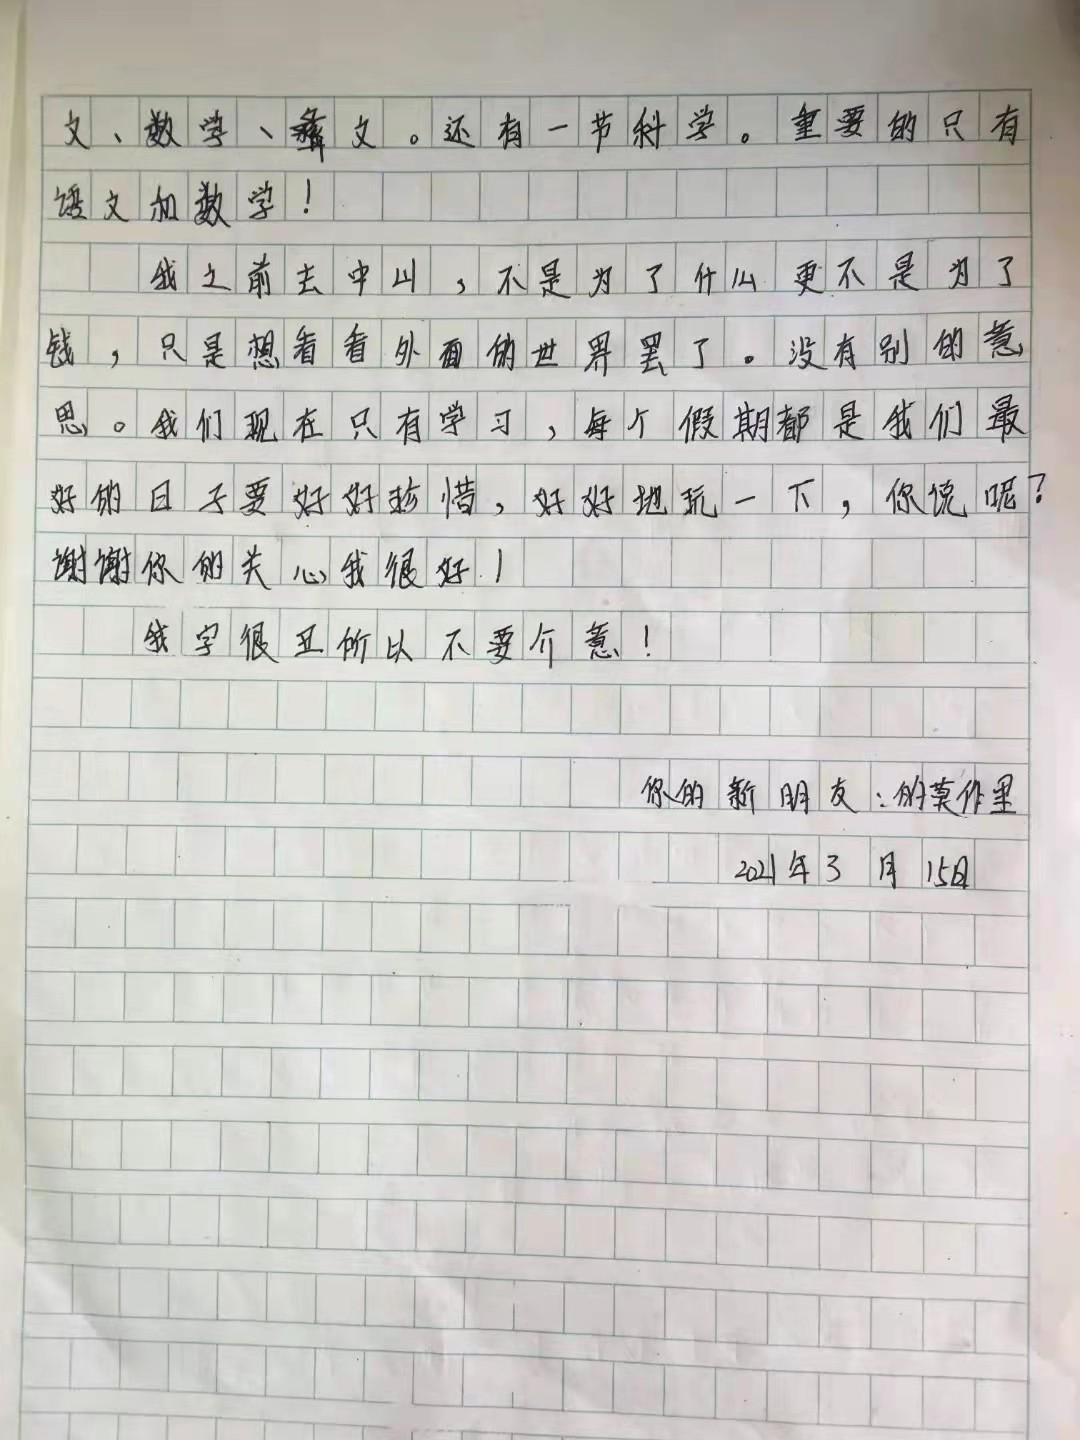 文、数学、彝文。还有一节科学。重要的只有
语文和数学！
我之前去中山，不是为了什么更不是为了
钱，只是想看看外面的世界罢了。没有别的意
思。我们现在只有学习，每个假期都是我们最
好的日子要好好珍惜，好好地玩一下，你说呢？
谢谢你的关心我很好！
我字很丑所以不要介意！
你的新朋友：的莫作里
2021年3月15日